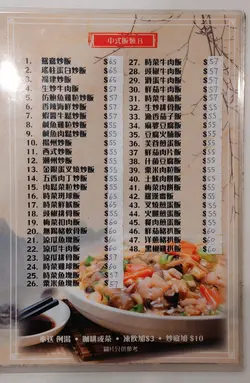 中式飯類 A
1. 鴛鴦炒飯 $65
2. 瑤柱蛋白炒飯 $65
3. 福建炒飯 $65
4. 生炒牛肉飯 $57
6. 西炒海鮮炒飯 $57
7. 蝦醬牛鬆炒飯 $57
8. 鹹魚雞粒炒飯 $55
9. 鹹魚肉鬆炒飯 $55
10. 楊州炒飯 $55
11. 西式炒飯 $55
12. 潮州炒飯 $55
13. 金銀蛋叉燒炒飯 $55
14. 五香肉丁炒飯 $55
15. 肉鬆菜粒炒飯 $55
16. 時菜斑球飯 $65
17. 時菜鮮魷飯 $65
18. 豉椒排骨飯 $55
20. 梅菜扣肉飯 $55
21. 涼瓜魚塊飯 $57
22. 涼瓜牛肉飯 $57
23. 涼瓜排骨飯 $57
24. 時菜雞球飯 $57
25. 時菜魚塊飯 $57
26. 粟米魚塊飯 $57
27. 時菜牛肉飯 $57
28. 豉椒牛肉飯 $57
29. 滑蛋牛肉飯 $57
30. 鮮茄牛肉飯 $57
31. 時菜牛鬆飯 $57
32. 生炒排骨飯 $55
33. 魚香茄子飯 $55
34. 麻婆豆腐飯 $55
35. 豆腐火腩飯 $55
36. 芙蓉煎蛋飯 $55
37. 鮮茄肉片飯 $55
38. 什菌豆腐飯 $55
39. 粟米肉粒飯 $55
40. 土魷肉餅飯 $55
41. 梅菜肉餅飯 $55
43. 叉燒煎蛋飯 $55
44. 火腿煎蛋飯 $55
45. 餐肉煎蛋飯 $55
46. 鮮茄豬扒飯 $60
47. 洋葱豬扒飯 $60
48. 黑椒豬扒飯 $60
奉送 例湯 • 咖啡或茶 • 凍飲加$3 • 炒底加 $10
圖片只供參考